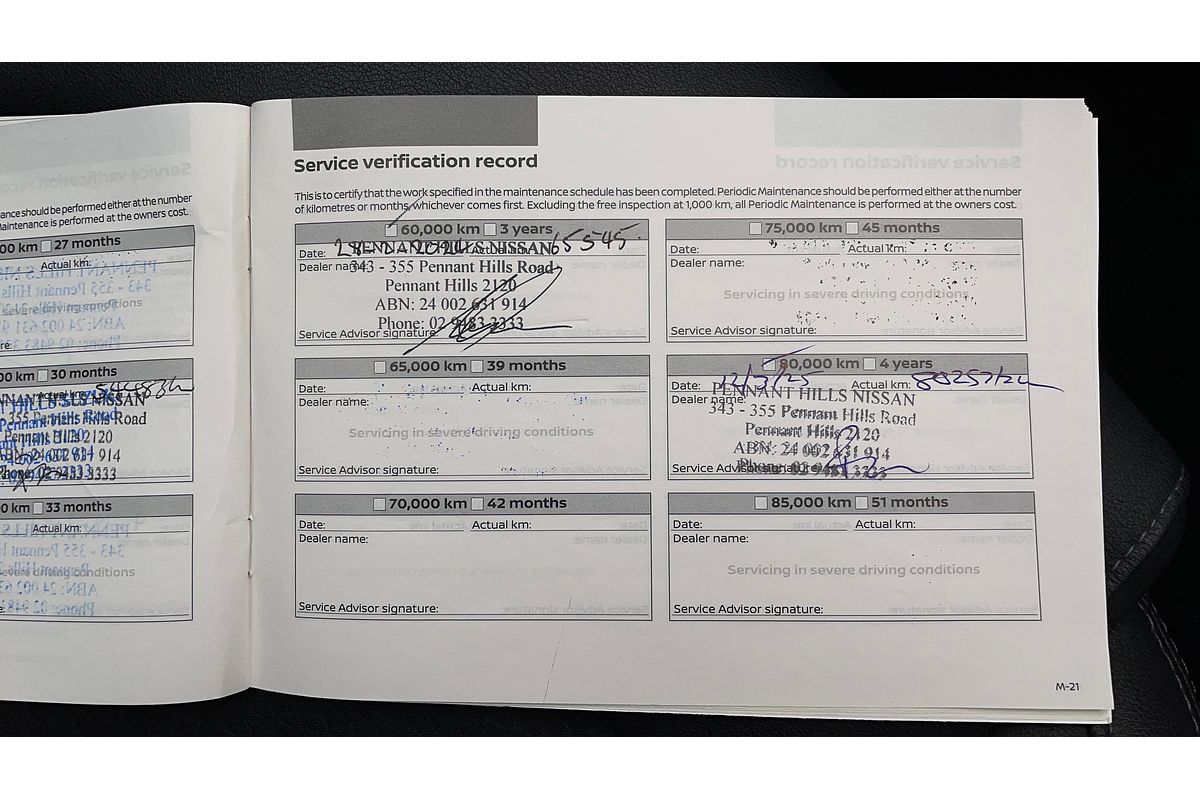 ance should be performed either at the number
aintenance is performed at the owners cost.
00 km 27 months
Actual km:
severe driving conditions
re:
00 km 30 months
54483km
NNANT HILLS NISSAN
355 Pennant Hills Road
Pennant Hills 2120
ABN: 24 002 631 914
Phone: 02 9483 3333
0 km 33 months
Actual km:
severe driving conditions
Service verification record
This is to certify that the work specified in the maintenance schedule has been completed. Periodic Maintenance should be performed either at the number
of kilometres or months, whichever comes first. Excluding the free inspection at 1,000 km, all Periodic Maintenance is performed at the owners cost.
60,000 km 3 years
Date: Actual km: 65545
PENNANT HILLS NISSAN
Dealer name:
343 - 355 Pennant Hills Road
Pennant Hills 2120
ABN: 24 002 631 914
Phone: 02 9483 3333
Service Advisor signature:
65,000 km 39 months
Date: Actual km:
Dealer name:
Servicing in severe driving conditions
Service Advisor signature:
70,000 km 42 months
Date: Actual km:
Dealer name:
Service Advisor signature:
75,000 km 45 months
Date: Actual km:
Dealer name:
Servicing in severe driving conditions
Service Advisor signature:
80,000 km 4 years
Date: 12/3/25 Actual km: 80257km
PENNANT HILLS NISSAN
Dealer name:
343 - 355 Pennant Hills Road
Pennant Hills 2120
ABN: 24 002 631 914
Phone: 02 9483 3333
Service Advisor signature:
85,000 km 51 months
Date: Actual km:
Dealer name:
Servicing in severe driving conditions
Service Advisor signature:
M-21